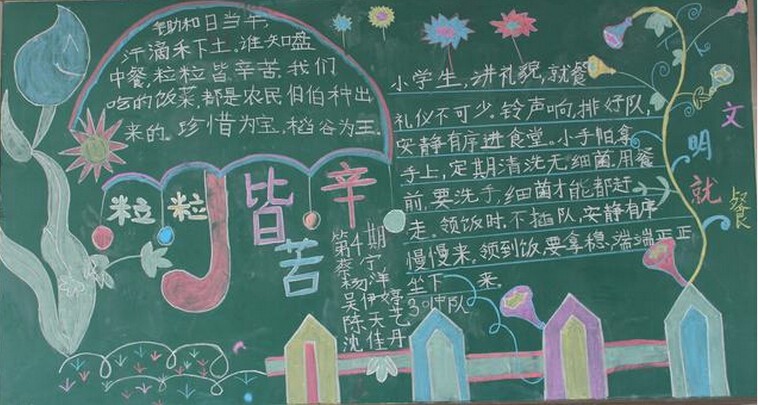 锄和日当午,
汗滴禾下土。谁知盘
中餐,粒粒皆辛苦。我们
吃的饭菜,都是农民伯伯种出
来的。珍惜为宝,稻谷为王。
粒粒皆辛苦
小学生,讲礼貌,就餐
礼仪不可少。铃声响,排好队,
安静有序进食堂。小手帕拿
手上,定期清洗无细菌。用餐
前,要洗手,细菌才能都赶
走。领饭时,不插队,安静有序
慢慢来。领到饭,要拿稳,端端正正
坐下来。
第4期
蔡宁
杨洋
吴伊婷
陈天艺
沈佳丹
30中队
文明就餐